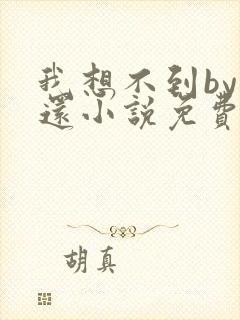 我想不到by
還小說免費
胡真